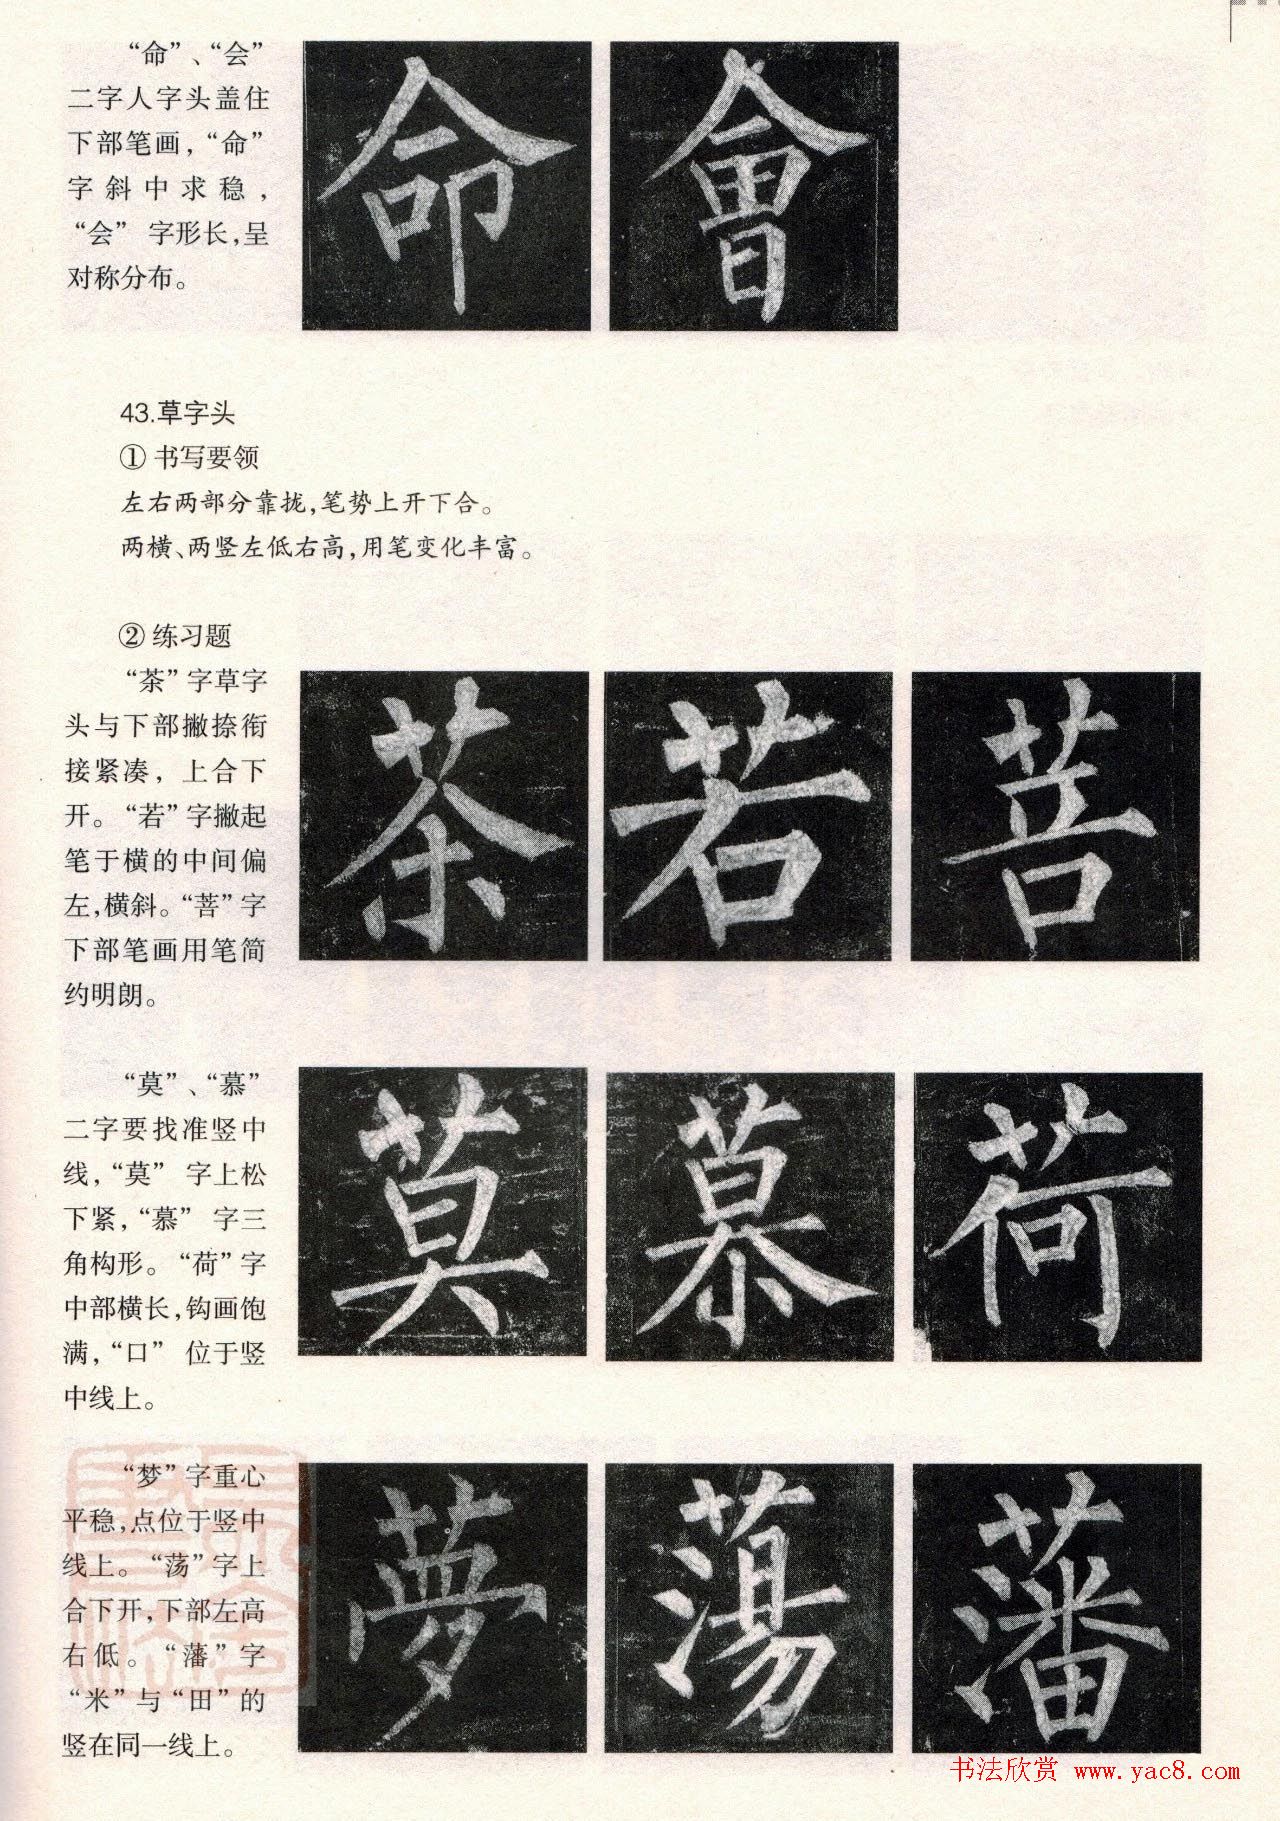 “命”、“会”
二字人字头盖住
下部笔画，“命”
字斜中求稳，
“会” 字形长，呈
对称分布。
命 會
43.草字头
① 书写要领
左右两部分靠拢，笔势上开下合。
两横、两竖左低右高，用笔变化丰富。
② 练习题
“茶”字草字
头与下部撇捺衔
接紧凑，上合下
开。“若”字撇起
笔于横的中间偏
左，横斜。“菩”字
下部笔画用笔简
约明朗。
茶 若 菩
“莫”、“慕”
二字要找准竖中
线，“莫” 字上松
下紧，“慕” 字三
角构形。“荷”字
中部横长，钩画饱
满，“口” 位于竖
中线上。
莫 慕 荷
“梦”字重心
平稳，点位于竖中
线上。“荡”字上
合下开，下部左高
右低。“藩”字
“米”与“田”的
竖在同一线上。
夢 蕩 藩
书法欣赏 www.yac8.com